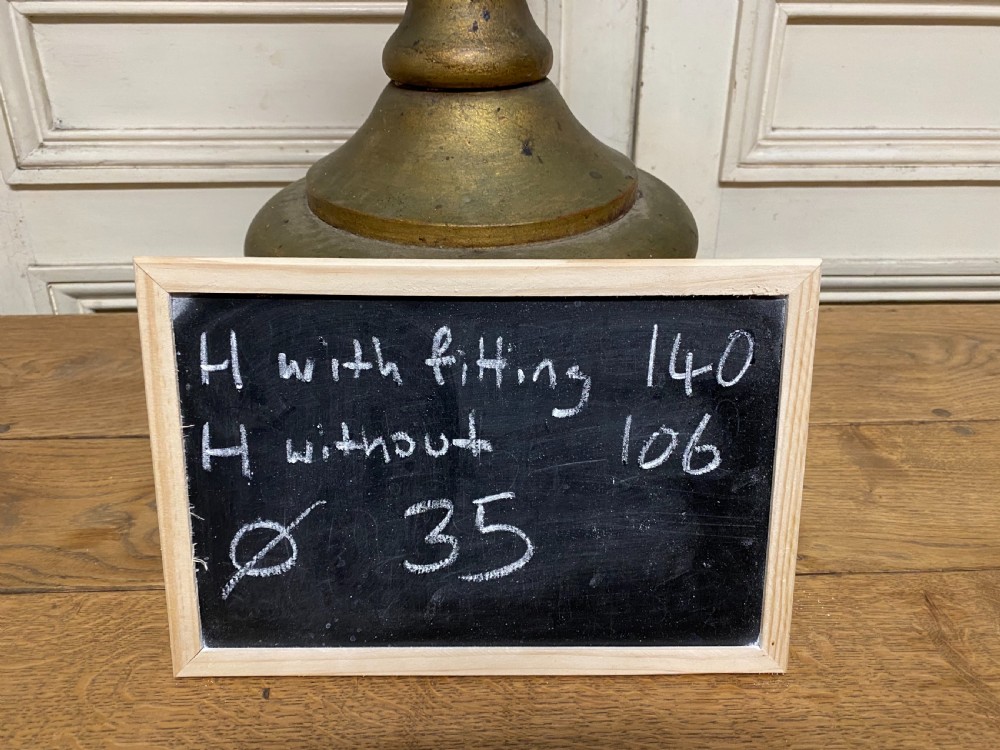 H with fitting 140
H without 106
Ø 35